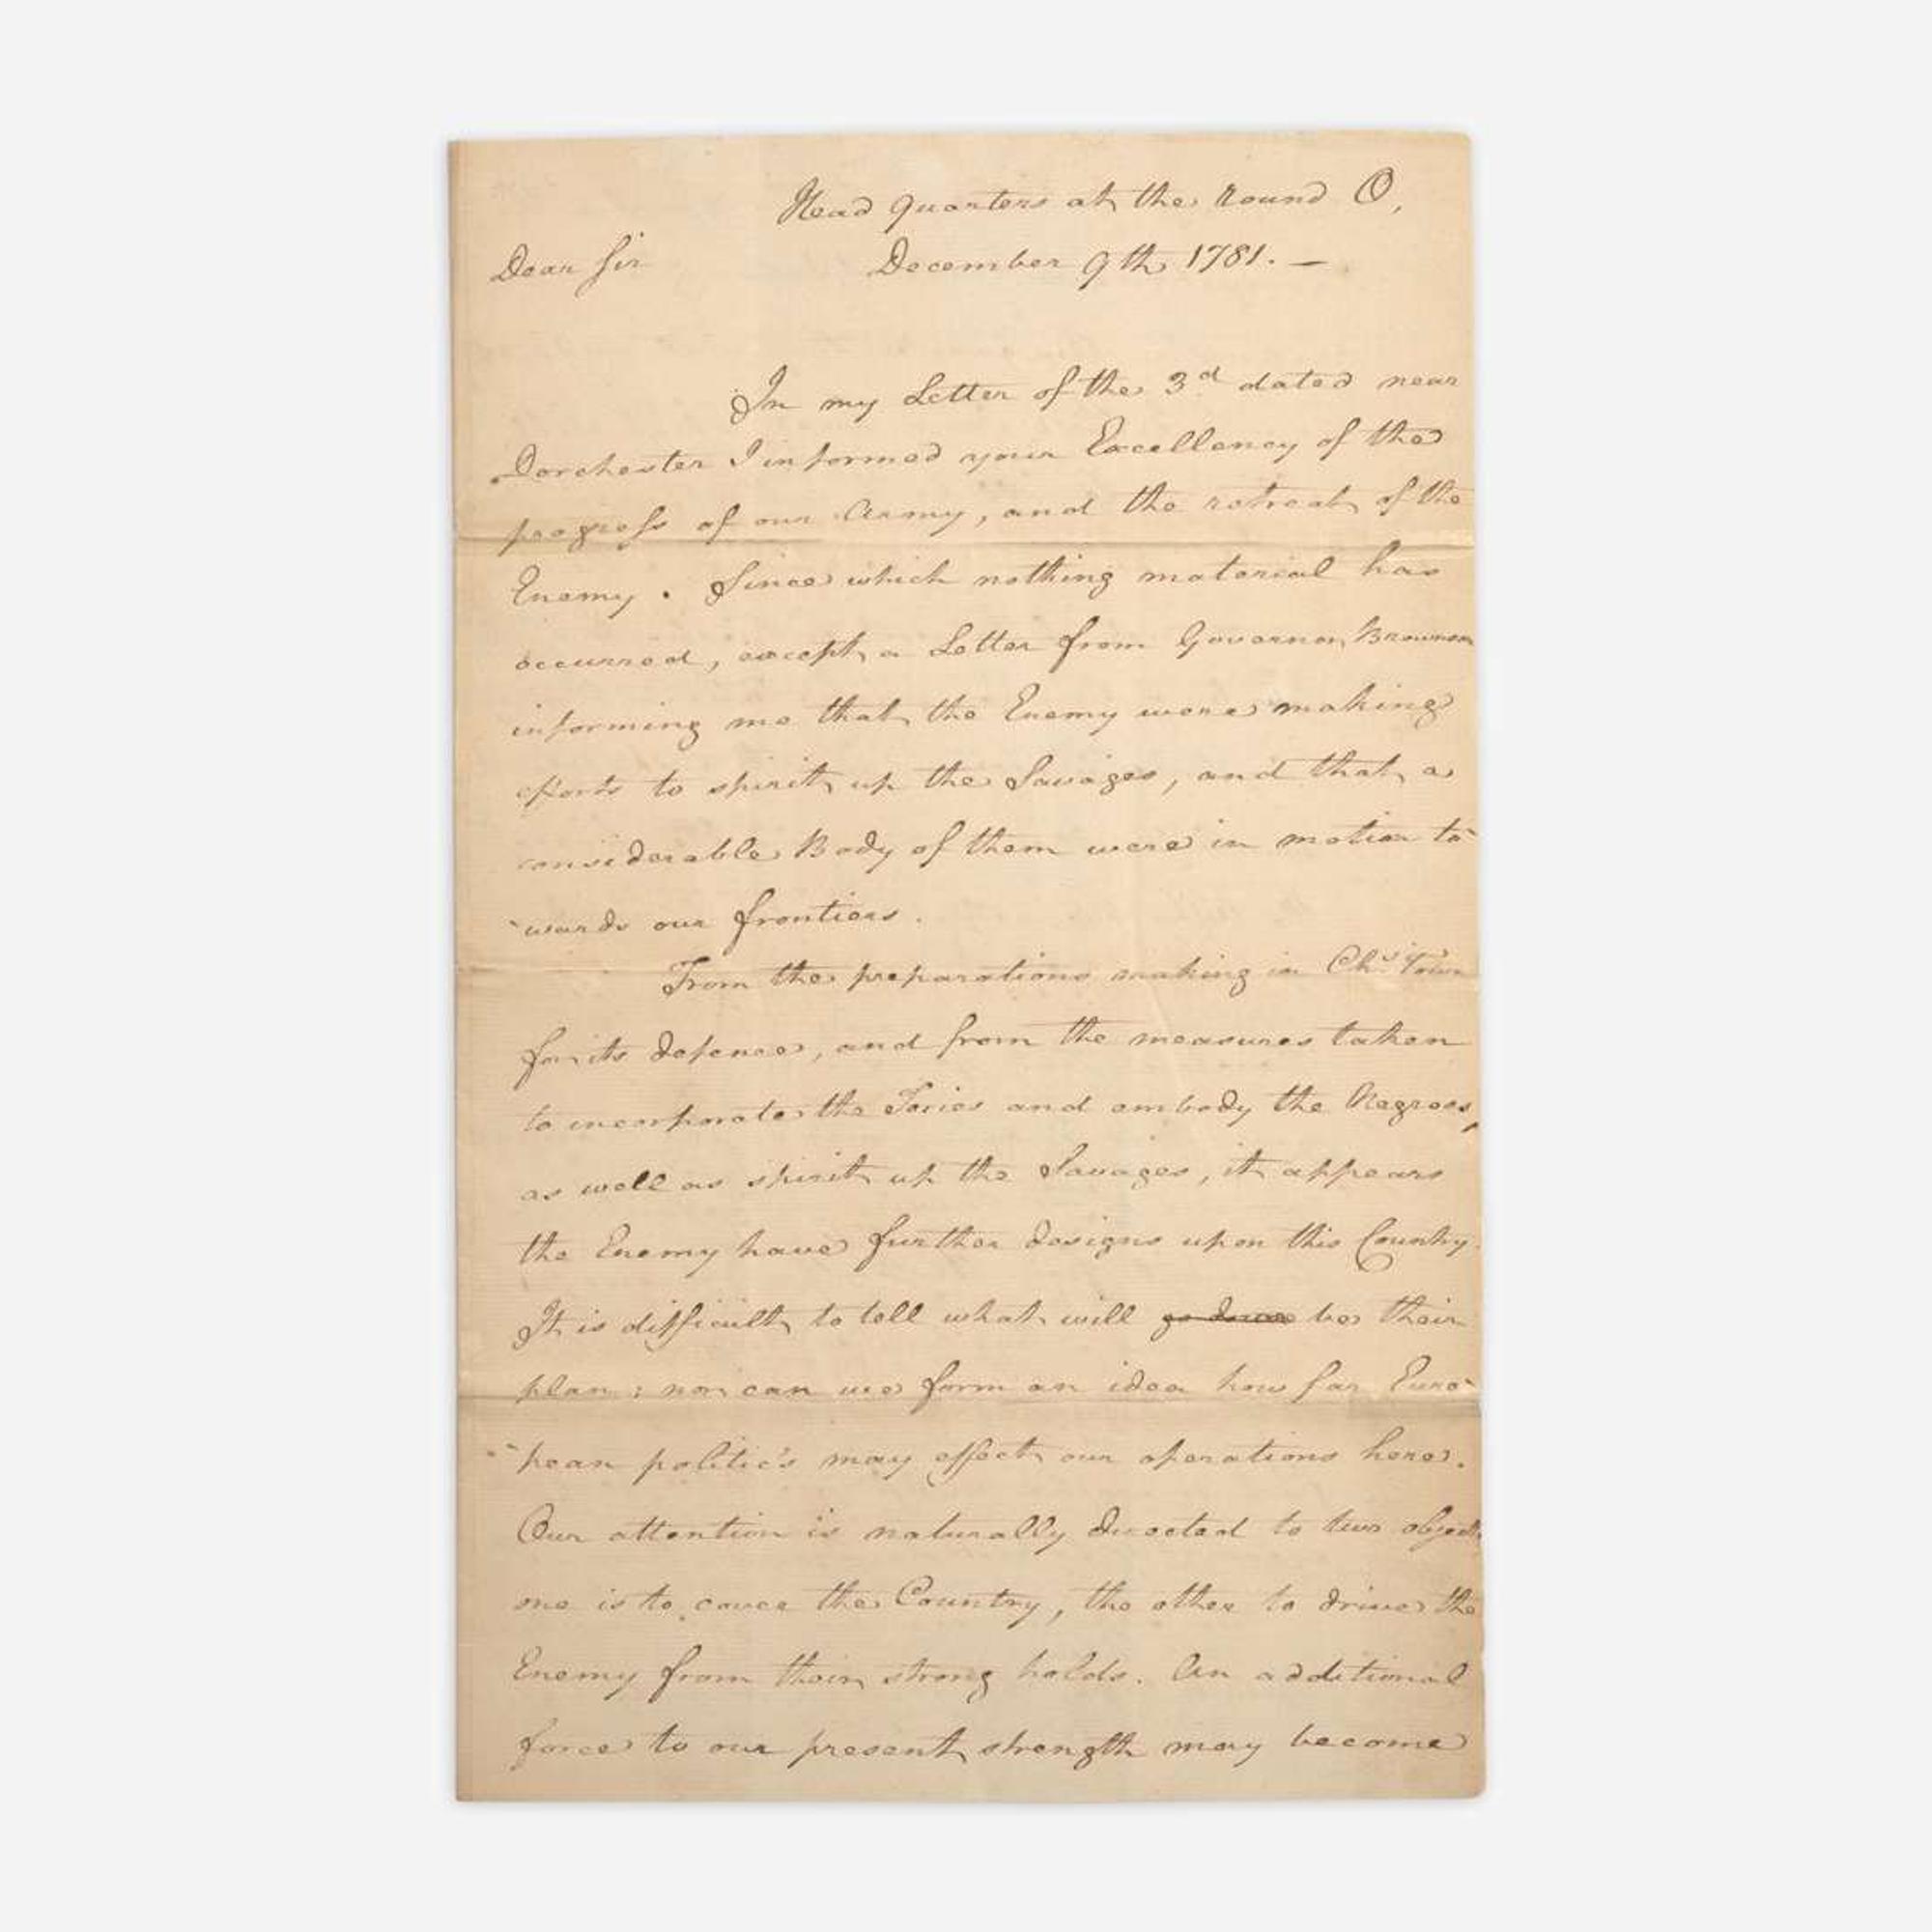 Head Quarters at the round O,
Dear Sir December 9th 1781. —
In my Letter of the 3d dated near
Dorchester I informed your Excellency of the
progress of our Army, and the retreat of the
Enemy. Since which nothing material has
occurred, except a Letter from Governor Brownson
informing me that the Enemy were making
efforts to spirit up the Savages, and that a
considerable Body of them were in motion to-
-wards our frontiers.
From the preparations making in Chs Town
for its defence, and from the measures taken
to incorporate the Tories and embody the Negroes,
as well as spirit up the Savages, it appears
the Enemy have further designs upon this Country.
It is difficult to tell what will be their
plan; nor can we form an idea how far Euro-
-pean politic's may effect our operations here.
Our attention is naturally directed to two objects
one is to cover the Country, the other to drive the
Enemy from their strong holds. An additional
force to our present strength may become